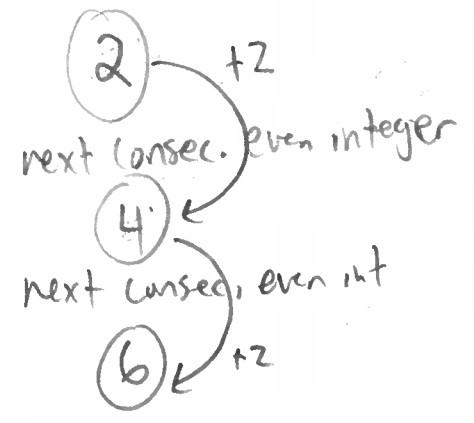 2
+2
next consec. even integer
4
next consec. even int
+2
6